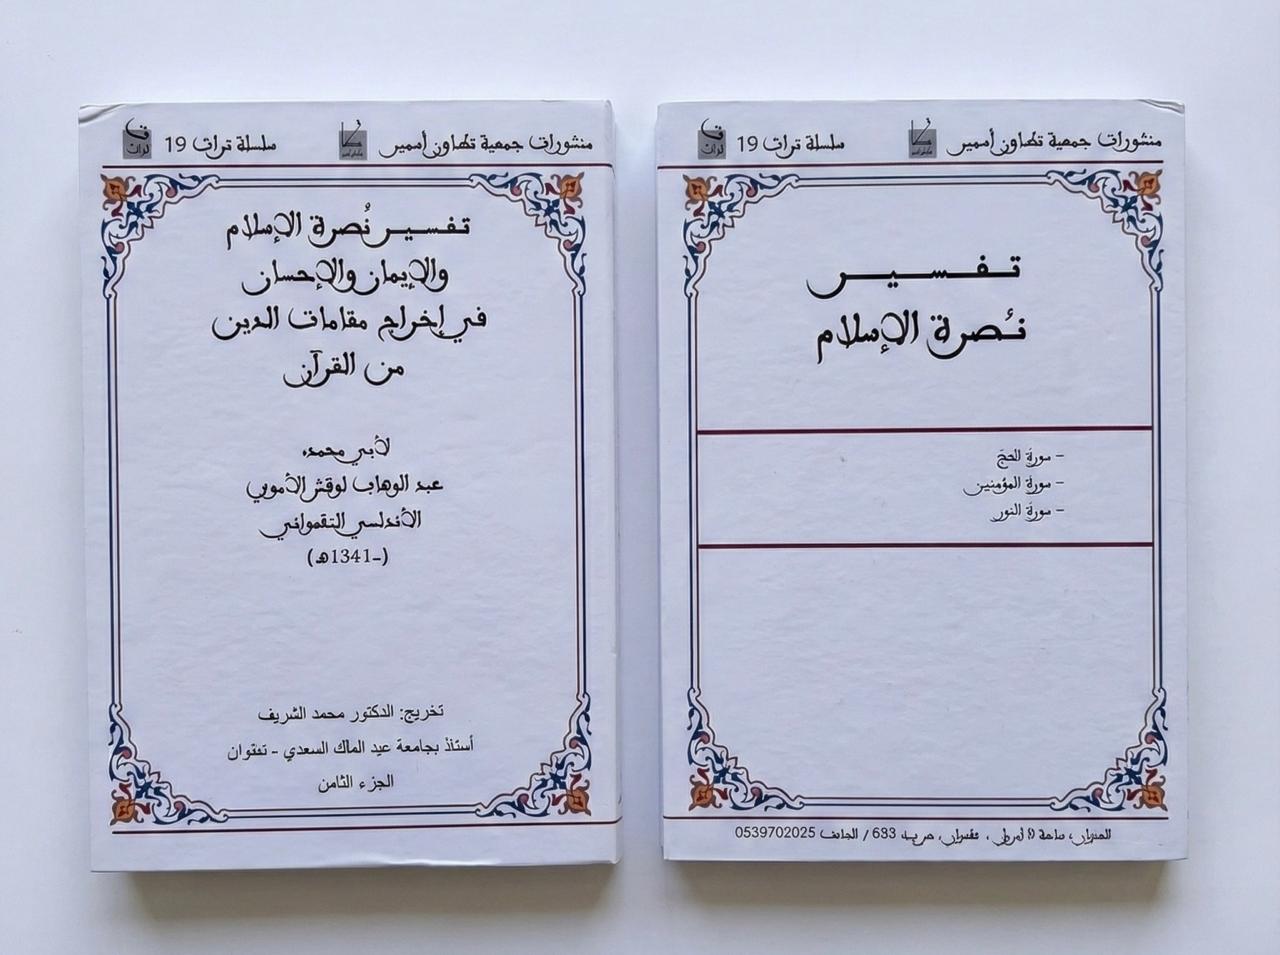 منشورات جمعية تطاون أسمير
سلسلة تراث 19
تفسير نُصرة الإسلام
والإيمان والإحسان
في إخراج مقامات الدين
من القرآن
لأبي محمد
عبد الوهاب لوقش الأموي
الأندلسي التطواني
(-1341ه)
تخريج: الدكتور محمد الشريف
أستاذ بجامعة عبد المالك السعدي - تطوان
الجزء الثامن
منشورات جمعية تطاون أسمير
سلسلة تراث 19
تفسير
نُصرة الإسلام
- سورة الحجّ
- سورة المؤمنين
- سورة النور
633 / الهاتف 0539702025